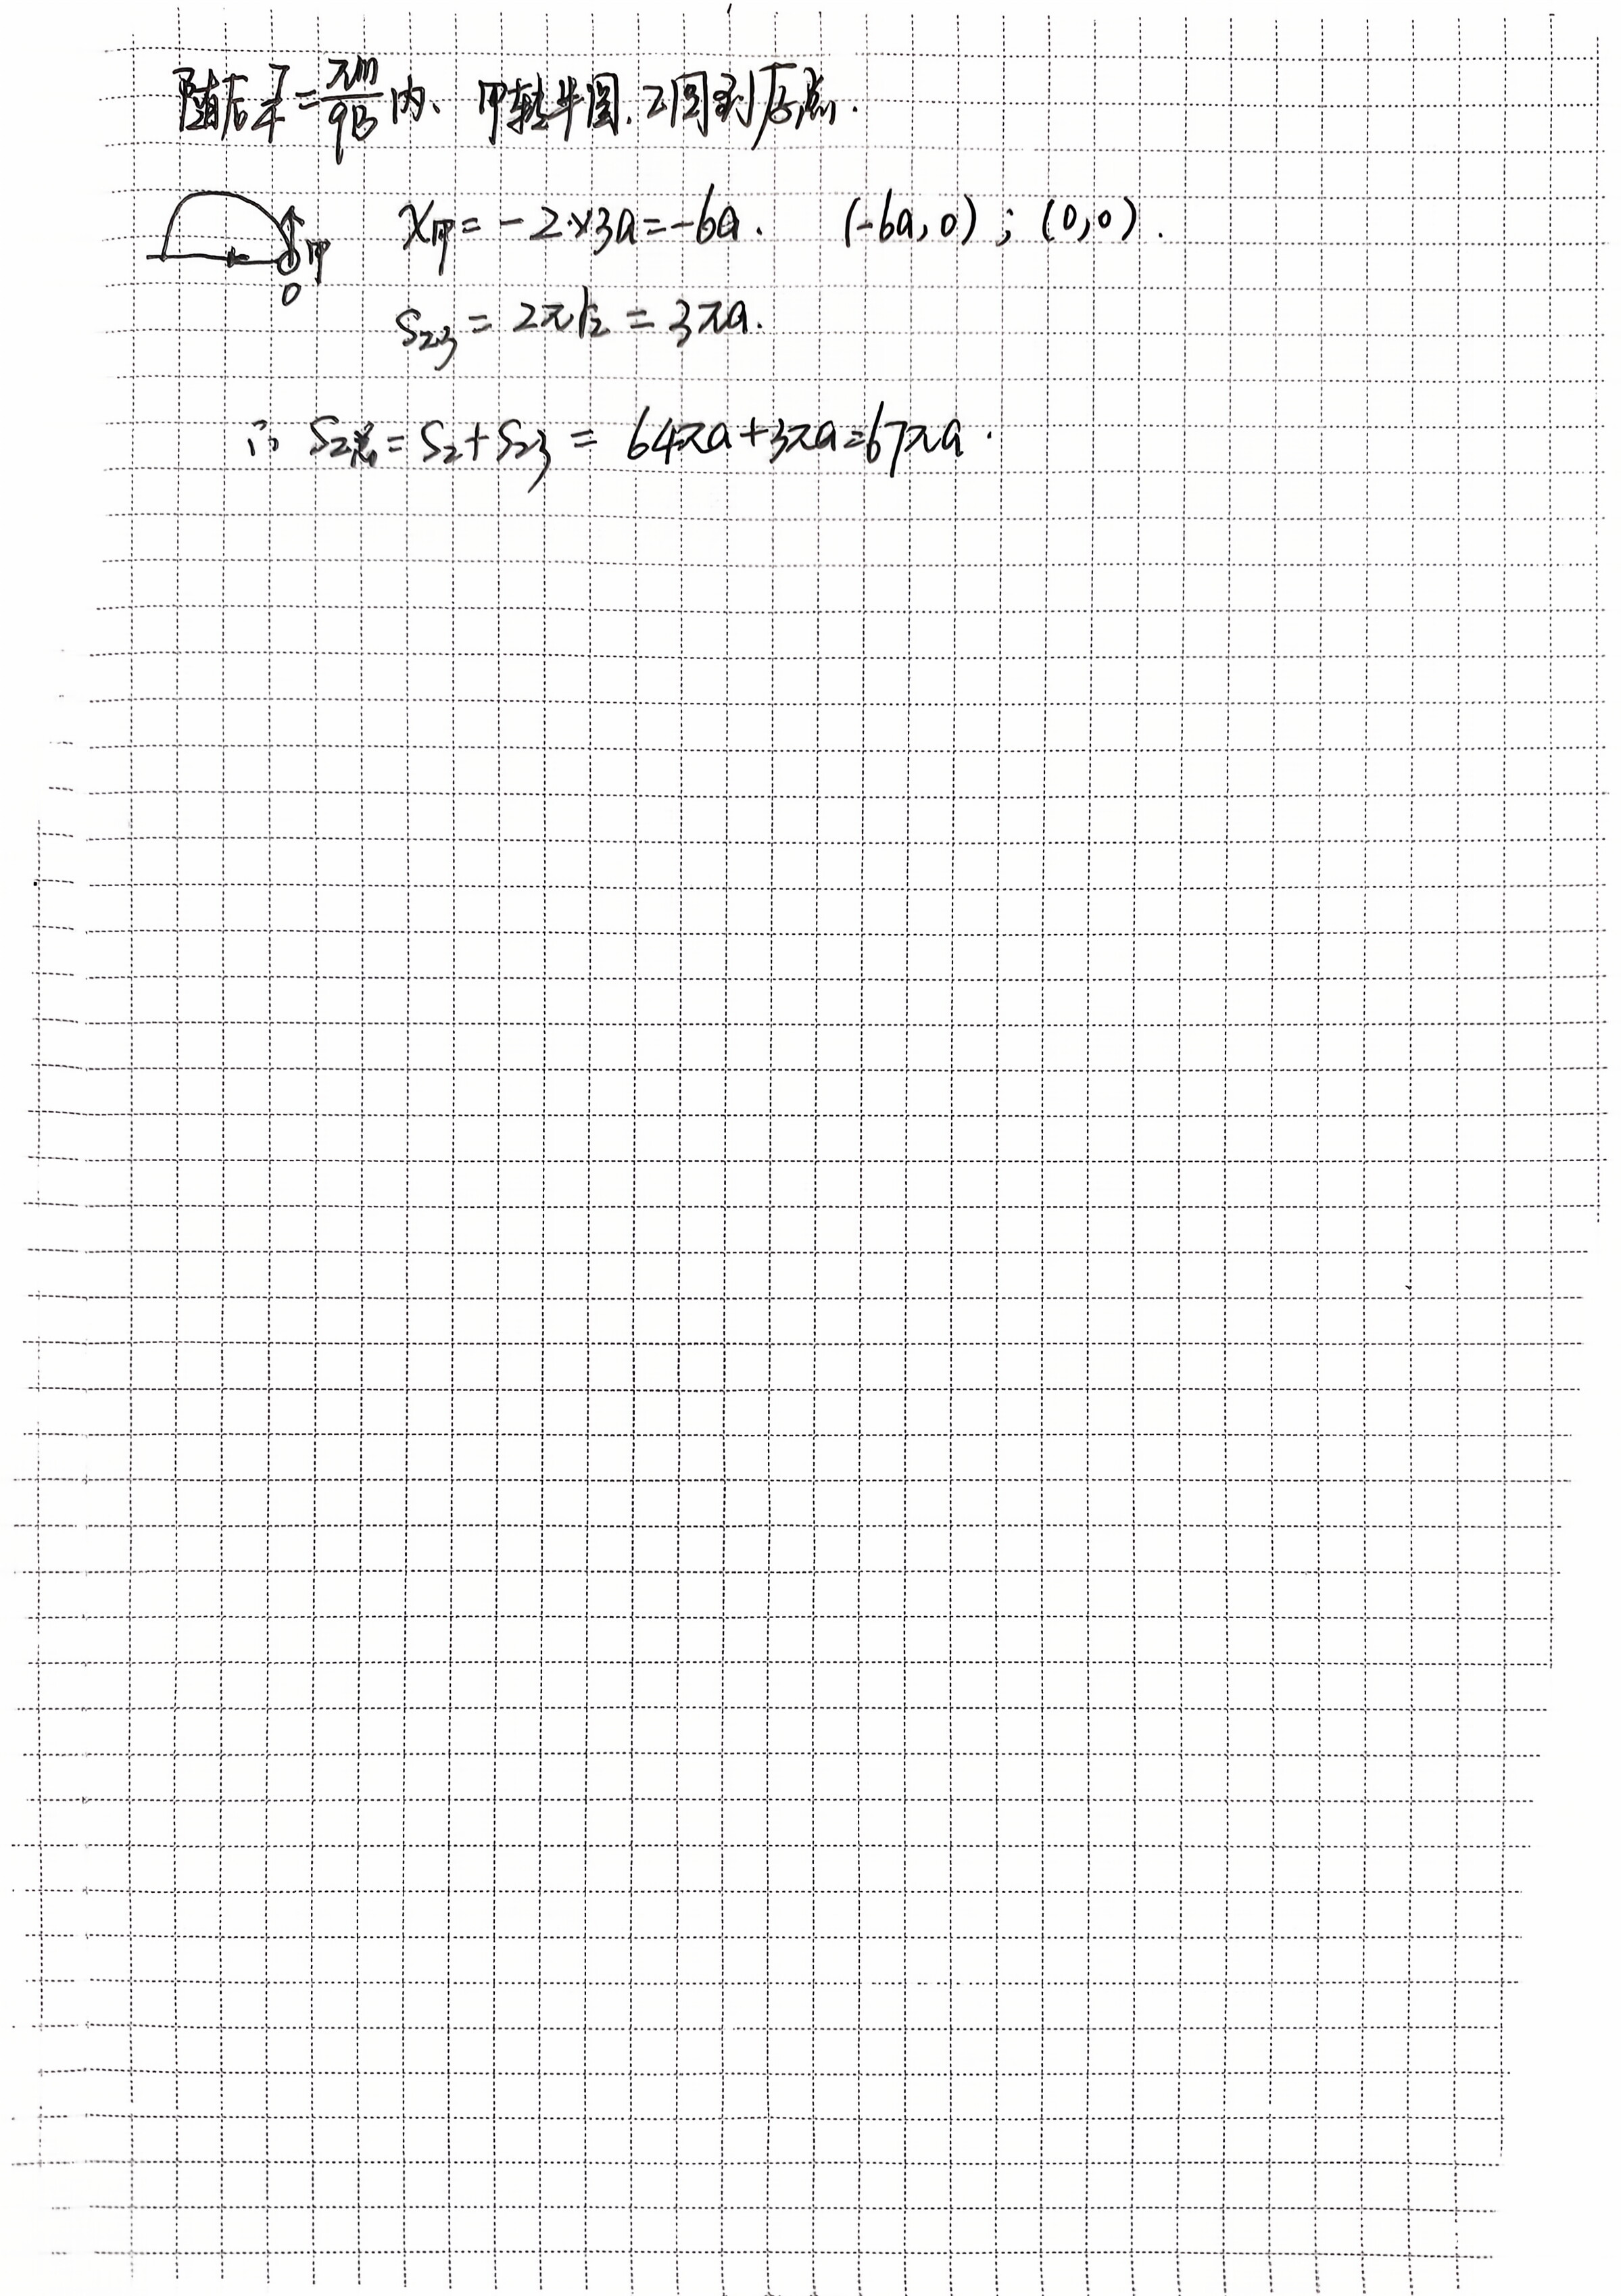 随后 T/4 = πm/qB 内、甲转半圈.乙回到原点.
x甲 = -2×3a = -6a. (-6a,0) ; (0,0).
甲
O
S₂₃ = 2πr₂ = 3πa.
∴ S₂总 = S₂+S₂₃ = 64πa+3πa=67πa.